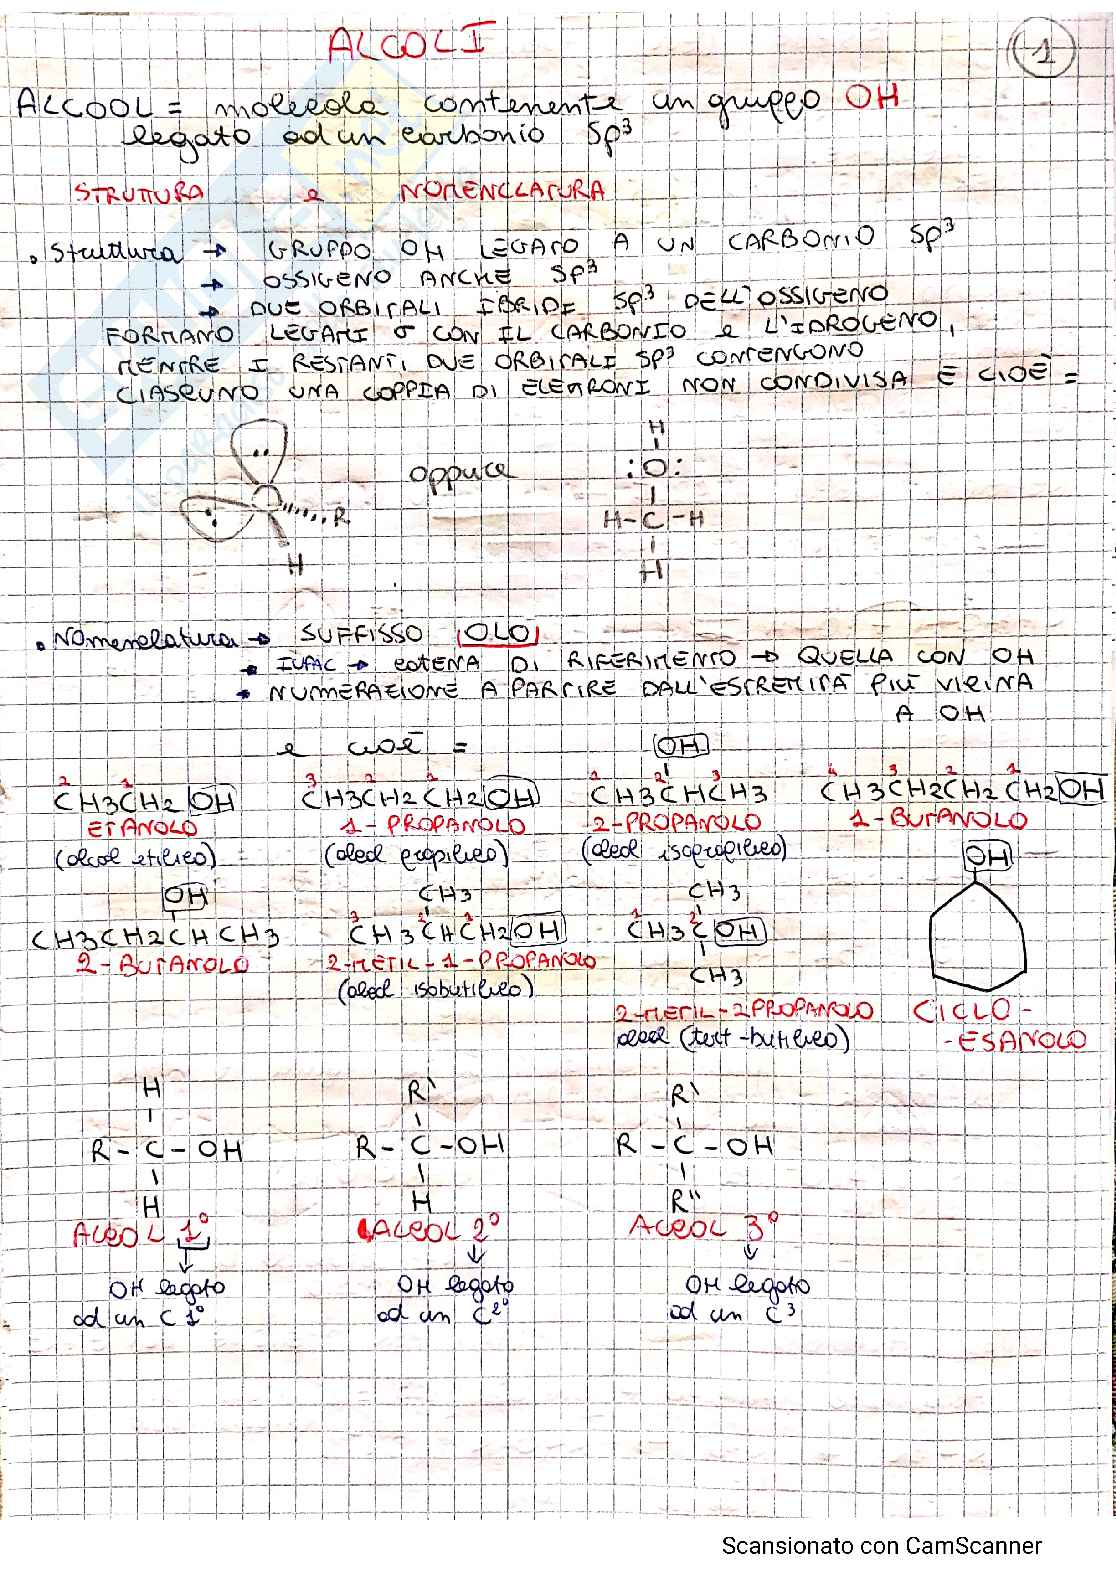 ALCOLI
1
ALCOOL = molecola contenente un gruppo OH
legato ad un carbonio Sp³
STRUTTURA e NOMENCLATURA
• Struttura → GRUPPO OH LEGATO A UN CARBONIO Sp³
→ OSSIGENO ANCHE Sp³
→ DUE ORBITALI IBRIDI Sp³ DELL'OSSIGENO
FORMANO LEGAMI σ CON IL CARBONIO e L'IDROGENO,
MENTRE I RESTANTI DUE ORBITALI Sp³ CONTENGONO
CIASCUNO UNA COPPIA DI ELETTRONI NON CONDIVISA E CIOÈ =
H
:O:
oppure
R
H-C-H
H
H
• Nomenclatura → SUFFISSO OLO
→ IUPAC → CATENA DI RIFERIMENTO → QUELLA CON OH
→ NUMERAZIONE A PARTIRE DALL'ESTREMITÀ PIÙ VICINA
A OH
e cioè =
OH
2 1 3 2 1 1 2 3 4 3 2 1
CH3CH2OH CH3CH2CH2OH CH3CHCH3 CH3CH2CH2CH2OH
ETANOLO 1-PROPANOLO 2-PROPANOLO 1-BUTANOLO
(alcol etilico) (alcol propilico) (alcol isopropilico)
OH CH3 CH3 OH
3 2 1 1 2
CH3CH2CHCH3 CH3CHCH2OH CH3COH
2-BUTANOLO 2-METIL-1-PROPANOLO CH3
(alcol isobutilico)
2-METIL-2PROPANOLO CICLO-
alcol (tert-butilico) -ESANOLO
H R' R'
R-C-OH R-C-OH R-C-OH
H H R''
ALCOL 1° ALCOL 2° ALCOL 3°
OH legato OH legato OH legato
ad un C 1° ad un C2° ad un C3
Scansionato con CamScanner